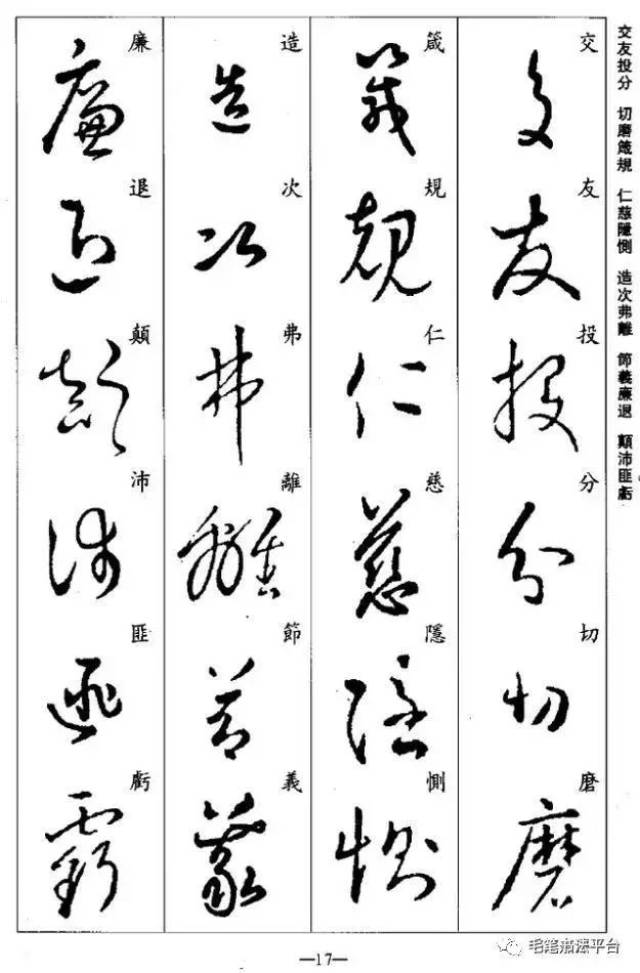 交友投分 切磨箴規 仁慈隱惻 造次弗離 節義廉退 顛沛匪虧
交友投分切磨
箴規仁慈隱惻
造次弗離節義
廉退顛沛匪虧
—17—
毛笔书法平台